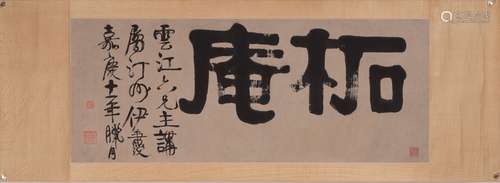 柘庵
雲江六兄主講
屬汀州伊秉綬
嘉慶十一年臘月